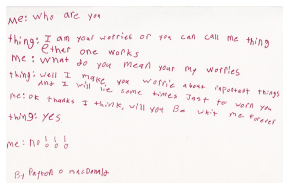 me: who are you
thing: I am your worries or you can call me thing
ether one works
me: what do you mean your my worries
thing: well I make you worrie about inportant things
and I will lie some times Just to worn you
me: ok thanks I think, will you Be whit me forever
thing: yes
me: no!!!
By Payton O macDonald